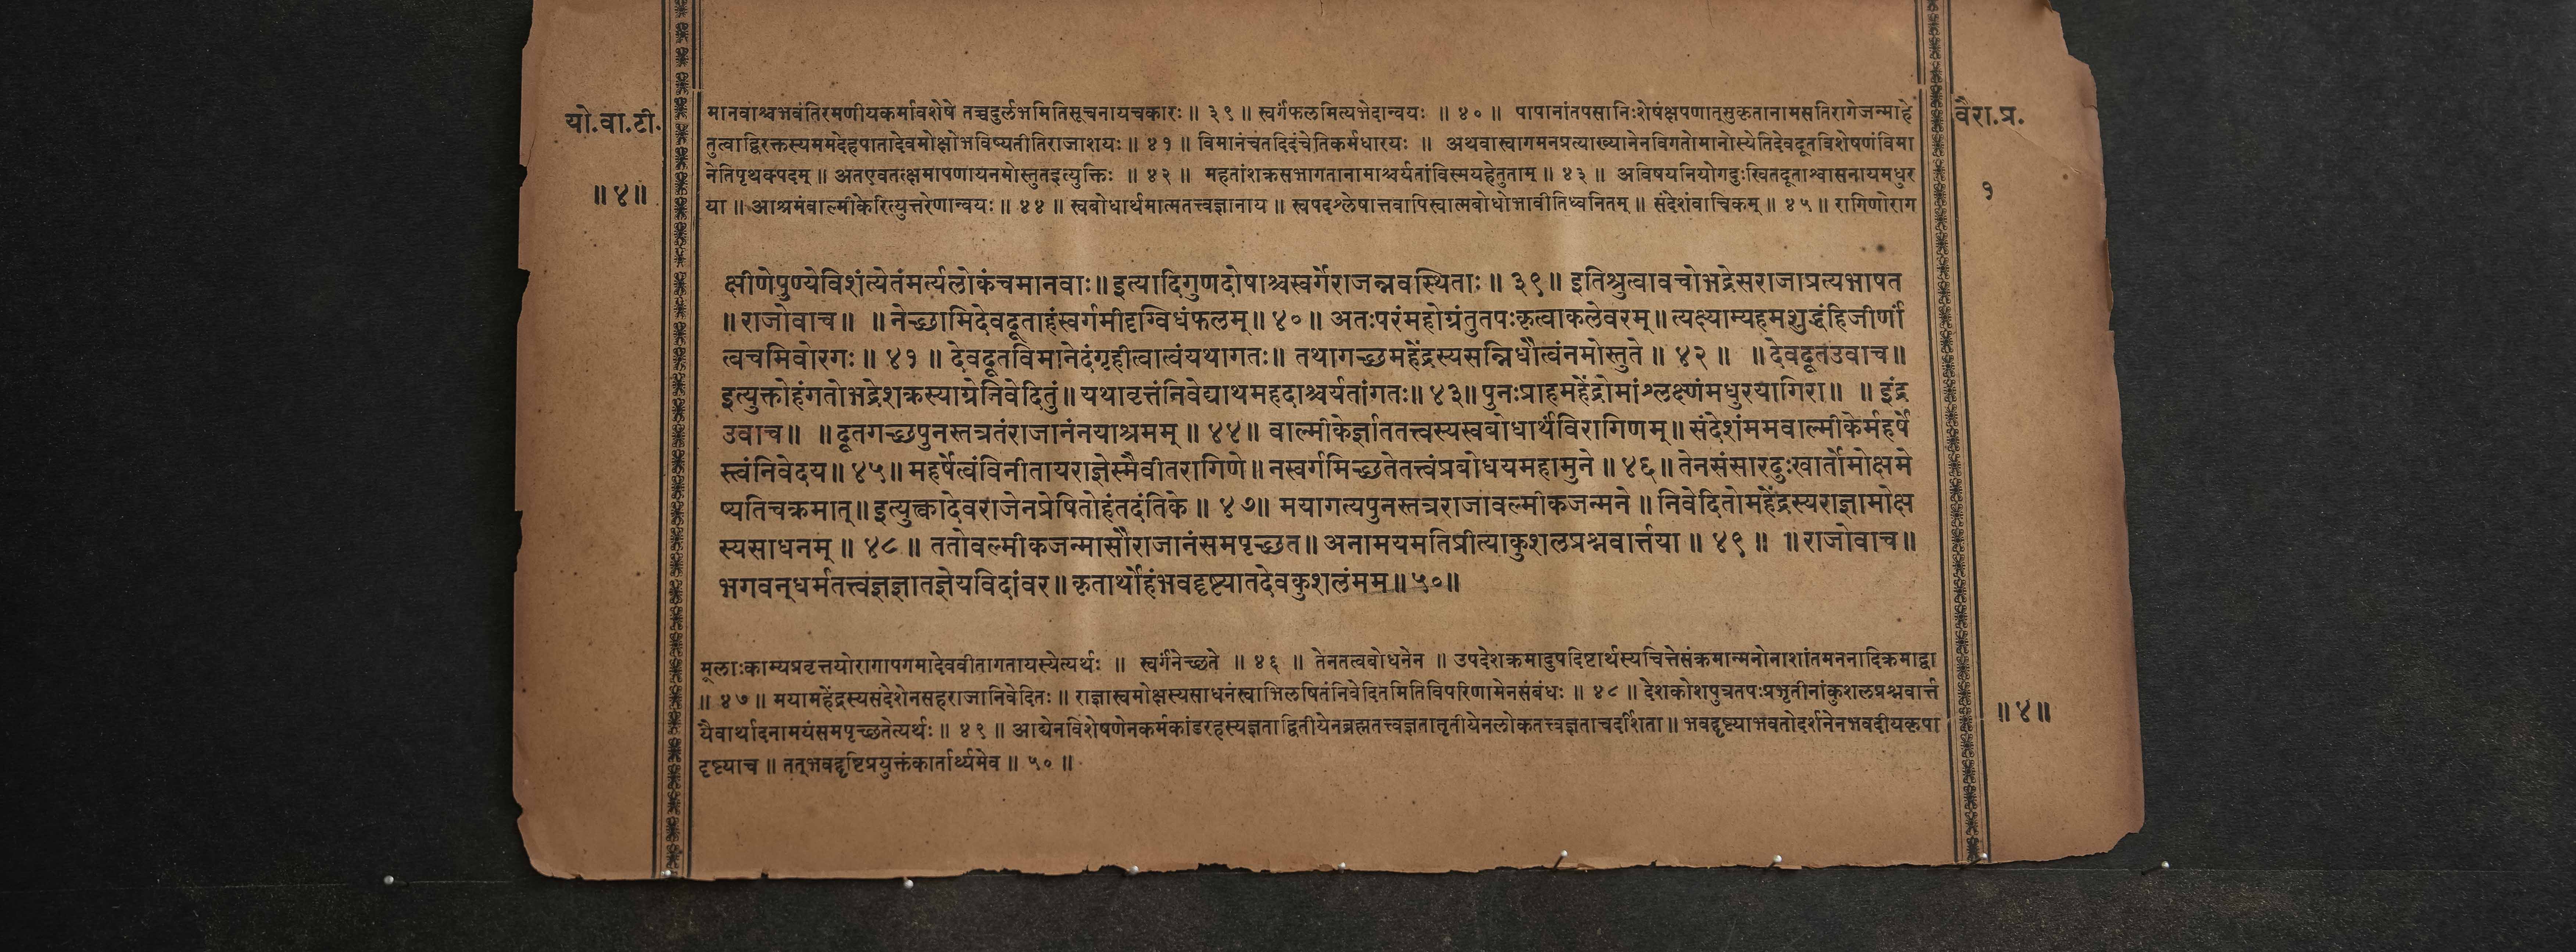 यो.वा.टी.
॥४॥
मानवाश्चभवंतिरमणीयकर्मावशेषे तच्चदुर्लभमितिसूचनायचकारः ॥ ३९ ॥ स्वर्गफलमित्यभेदान्वयः ॥ ४० ॥ पापानांतपसानिःशेषंक्षपणात्सुकृतानामसतिरागेजन्माहे
तुत्वाद्विरक्तस्यममदेहपातादेवमोक्षोभविष्यतीतिराजाशयः ॥ ४१ ॥ विमानंचतदिदंचेतिकर्मधारयः ॥ अथवास्वागमनप्रत्याख्यानेनविगतोमानोस्येतिदेवदूतविशेषणंविमा
नेतिपृथक्पदम् ॥ अतएवतत्क्षमापणायनमोस्तुतइत्युक्तिः ॥ ४२ ॥ महतांशक्रसभागतानामाश्चर्यतांविस्मयहेतुताम् ॥ ४३ ॥ अविषयनियोगदुःखितदूताश्वासनायमधुर
या ॥ आश्रमंवाल्मीकेरित्युत्तरेणान्वयः ॥ ४४ ॥ स्वबोधार्थमात्मतत्त्वज्ञानाय ॥ स्वपदश्लेषात्तवापिस्वात्मबोधोभावीतिध्वनितम् ॥ संदेशंवाचिकम् ॥ ४५ ॥ रागिणोराग
वैरा.प्र.
१
क्षीणेपुण्येविशंत्येतंमर्त्यलोकंचमानवाः ॥ इत्यादिगुणदोषाश्चस्वर्गेराजन्नवस्थिताः ॥ ३९ ॥ इतिश्रुत्वावचोभद्रेसराजाप्रत्यभाषत
॥ राजोवाच ॥ ॥ नेच्छामिदेवदूताहंस्वर्गमीदृग्विधंफलम् ॥ ४० ॥ अतःपरंमहोग्रंतुतपःकृत्वाकलेवरम् ॥ त्यक्ष्याम्यहमशुद्धंहिजीर्णां
त्वचमिवोरगः ॥ ४१ ॥ देवदूतविमानेदंगृहीत्वात्वंयथागतः ॥ तथागच्छमहेंद्रस्यसन्निधौत्वंनमोस्तुते ॥ ४२ ॥ ॥ देवदूतउवाच ॥
इत्युक्तोहंगतोभद्रेशक्रस्याग्रेनिवेदितुं ॥ यथावृत्तंनिवेद्याथमहदाश्चर्यतांगतः ॥ ४३ ॥ पुनःप्राहमहेंद्रोमांश्लक्ष्णंमधुरयागिरा ॥ ॥ इंद्र
उवाच ॥ ॥ दूतगच्छपुनस्तत्रतंराजानंनयाश्रमम् ॥ ४४ ॥ वाल्मीकेर्ज्ञाततत्त्वस्यस्वबोधार्थंविरागिणम् ॥ संदेशंममवाल्मीकेर्महर्षे
स्त्वंनिवेदय ॥ ४५ ॥ महर्षेत्वंविनीतायराज्ञेस्मैवीतरागिणे ॥ नस्वर्गमिच्छतेतत्त्वंप्रबोधयमहामुने ॥ ४६ ॥ तेनसंसारदुःखार्तोमोक्षमे
ष्यतिचक्रमात् ॥ इत्युत्कादेवराजेनप्रेषितोहंतदंतिके ॥ ४७ ॥ मयागत्यपुनस्तत्रराजावल्मीकजन्मने ॥ निवेदितोमहेंद्रस्यराज्ञामोक्ष
स्यसाधनम् ॥ ४८ ॥ ततोवल्मीकजन्मासौराजानंसमपृच्छत ॥ अनामयमतिप्रीत्याकुशलप्रश्नवार्त्तया ॥ ४९ ॥ ॥ राजोवाच ॥
भगवन्धर्मतत्त्वज्ञज्ञातज्ञेयविदांवर ॥ कृतार्थोहंभवदृष्ट्यातदेवकुशलंमम ॥ ५० ॥
मूलाःकाम्यप्रवृत्तयोरागापगमादेववीतागतायस्येत्यर्थः ॥ स्वर्गंनेच्छते ॥ ४६ ॥ तेनतत्वबोधनेन ॥ उपदेशक्रमादुपदिष्टार्थस्यचित्तेसंक्रमान्मनोनाशांतमननादिक्रमाद्वा
॥ ४७ ॥ मयामहेंद्रस्यसंदेशेनसहराजानिवेदितः ॥ राज्ञास्वमोक्षस्यसाधनंस्वाभिलषितंनिवेदितमितिविपरिणामेनसंबंधः ॥ ४८ ॥ देशकोशपुत्रतपःप्रभृतीनांकुशलप्रश्नवार्त्त
यैवार्थादनामयंसमपृच्छतेत्यर्थः ॥ ४९ ॥ आद्येनविशेषणेनकर्मकांडरहस्यज्ञताद्वितीयेनब्रह्मतत्त्वज्ञतातृतीयेनलोकतत्त्वज्ञताचदर्शिता ॥ भवदृष्ट्याभवतोदर्शनेनभवदीयकृपा
दृष्ट्याच ॥ तत्भवद्दृष्टिप्रयुक्तंकार्तार्थ्यमेव ॥ ५० ॥
॥४॥